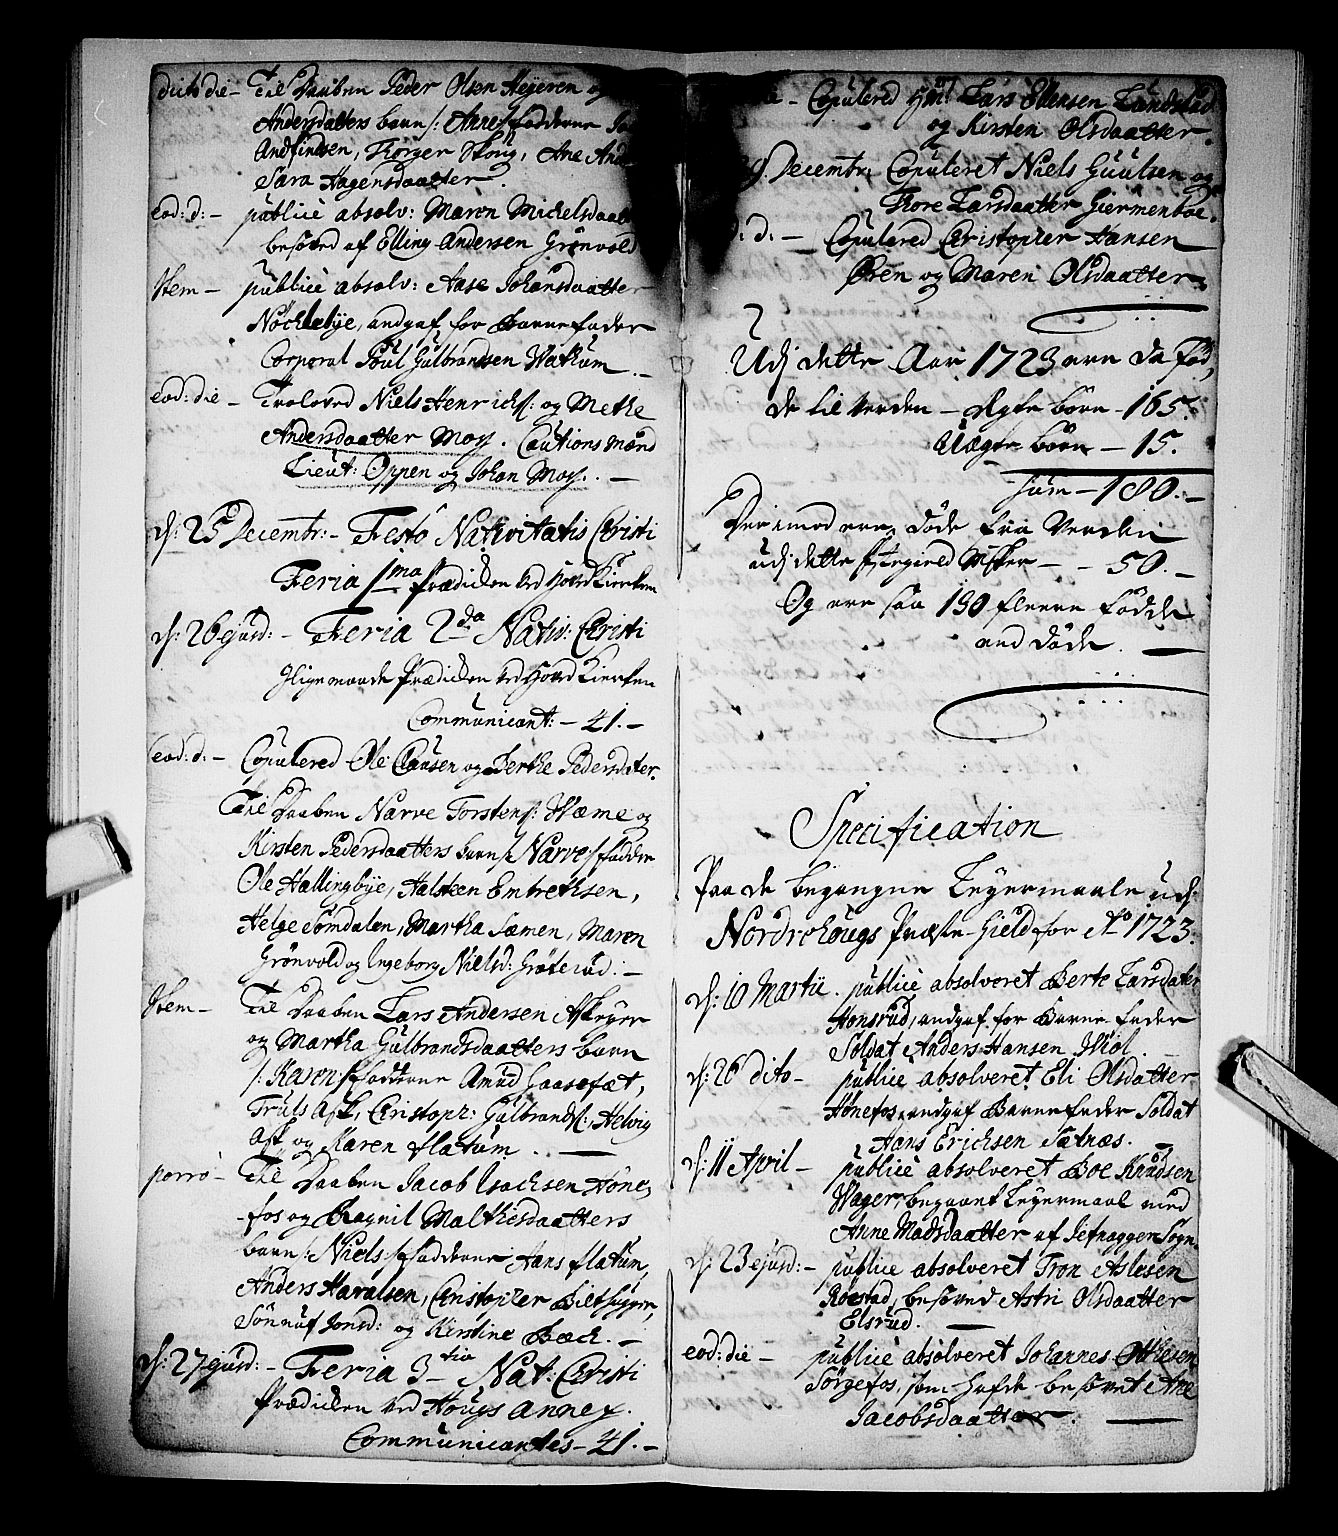 dicto die – Til Daaben Peder Olsen Heyeren og
Andersdatters barn /: Anne :/ fadderne
Andfindsen, Torger Skoug, Ane
Sara Hagensdaatter.
eod: d: – publicè absolv: Maren Michelsdaat
besöved af Elling Andersen Grönvold
Item – publicè absolv: Aase Johansdaatter
Nöchlebye, andgaf for Barnefader
Corporal Poul Gulbrandsen Wathum.
eod: die – Troloved Niels Henrichs: og Methe
Andersdaatter Moe. Cautions Mænd
Lieut: Oppen og Johan Moe. –
d: 25 Decembr: – Festo Nativitatis Christi
Feria 1ma Prædicken ved Hovd Kierken
d: 26 ejusd: – Feria 2da Nativ: Christi
Ligemaade Prædicken ved Hovd Kierken
Communicant: – 41. –
eod: d: – Copulered Ole Clausen og Berthe Pedersdater.
Til Daaben Narve Torstens: Wæme og
Kirsten Pedersdaatters barn /: Narve :/ faddere
Ole Hallingbye, Halsteen Embrethsen,
Helge Somdalen, Martha Sæmen, Maren
Grönvold og Ingeborg Nielsd: Gröterud. –
Item – Til Daaben Lars Andersen Askeyer
og Martha Gulbrandsdaatters barn
/: Karen :/ fadderne Amud Haasefæt,
Truls Ask, Cristoph: Gulbrands:, Helvig
Ask og Karen flatum. –
porrò – Til Daaben Jacob Isachsen Höne,
fos og Ragnil Malthisdaatters
barn /: Niels :/ fadderne Hans flatum,
Anders Haralsen, Cristopher Bilthugger,
Sönnuf Jonsd: og Kirstine Bæch. –
d: 27 ejusd: – Feria 3tia Nat: Christi
Prædicken ved Hougs Annex.
Communicantes – 41. –
– Copulered Lars Ellensen Lundstad
og Kirsten Olsdaatter.
9 Decembr: Copuleret Niels Guulsen og
Tore Larsdaatter Giermenboe.
d: – Copulered Christopher Hansen
Øren og Maren Olsdaatter.
Udj dette Aar 1723 ere da föd,
de til Verden – Ægte börn – 165.
Uægte börn – 15.
Sum – 180. –
Derimod ere döde fra Verden
udj dette – – 50. –
Og ere saa 130 fleere födde
end döde. –
Specification
Paa de begangne Leyermaale udj
Nordrehougs Præste-Gield for Ao 1723.
d: 10 Martii. publicè absolveret Berte Larsdater
Honsrud, andgaf for Barnefader
Soldat Anders Hansen Wiol.
d: 26 dito – publicè absolveret Eli Olsdaatter
Hönefos, andgaf Barnefader Soldat
Hans Erichsen Sætræs.
d: 11 April – publicè absolveret Boe Knudsen
Wager, begaaet Leyermaal med
Anne Madsdaatter af Jefnagger Sogn.
d: 23 ejusd: – publicè absolveret Tron Aslesen
Röestad, besöved Astri Olsdaatter
Elsrud. –
eod: die – publicè absolveret Johannes Othesen
Sörgefos, som hafde besövet Ane
Jacobsdaatter. –